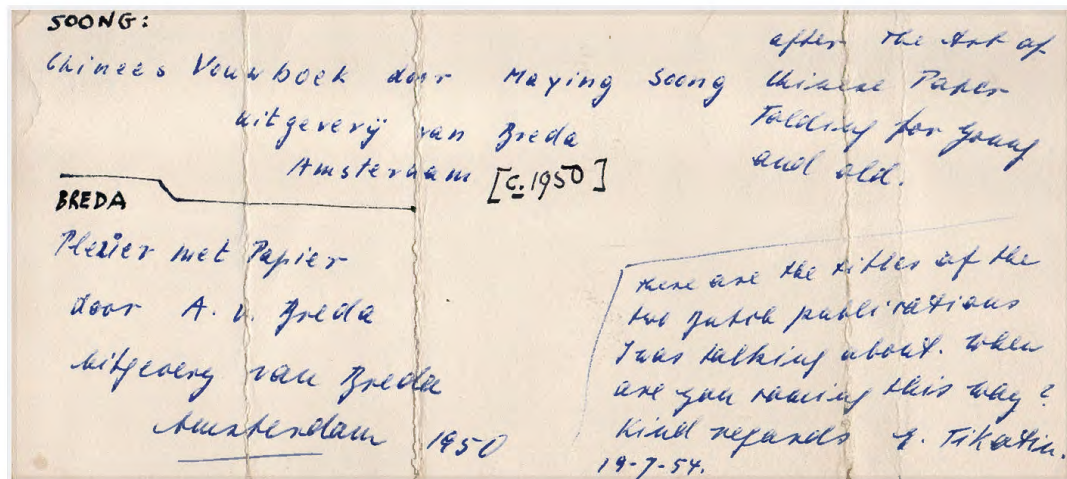 SOONG:
Chinees Vouwboek door Maying Soong
uitgeverij van Breda
Amsterdam [c. 1950]
after the Art of
Chinese Paper
Folding for young
and old.
BREDA
Plezier met Papier
door A. v. Breda
uitgevery van Breda
Amsterdam 1950
Here are the titles of the
two Dutch publications
I was talking about. When
are you coming this way?
Kind regards G. Tikotin.
19-7-54.